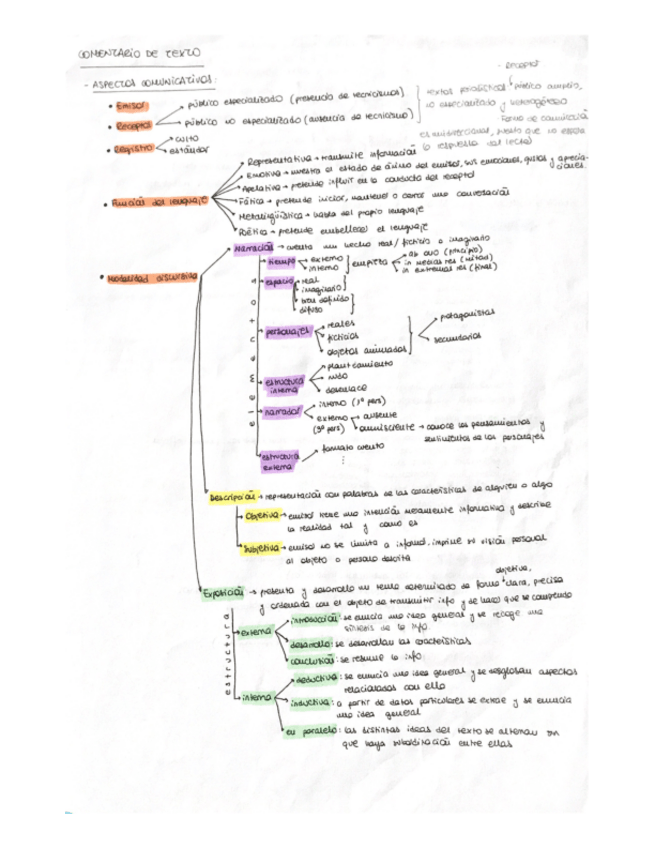 COMENTARIO DE TEXTO
- ASPECTOS COMUNICATIVOS:
- Receptor
• Emisor
• Receptor
público especializado (presencia de tecnicismos)
público no especializado (ausencia de tecnicismo)
textos periodísticos público amplio,
no especializado y heterogéneo
Forma de comunicación
es unidireccional, puesto que no espera
la respuesta del lector
• Registro
culto
estándar
• Función del lenguaje
Representativa → transmite información
Emotiva → muestra el estado de ánimo del emisor, sus emociones, gustos y aprecia-
ciones
Apelativa → pretende influir en la conducta del receptor
Fática → pretende iniciar, mantener o cerrar una conversación
Metalingüística → habla del propio lenguaje
Poética → pretende embellecer el lenguaje
• Modalidad discursiva
Narración → cuenta un hecho real / ficticio o imaginado
elementos
tiempo
externo
interno
empieza
ab ovo (principio)
in medias res (mitad)
in extremas res (final)
espacio
real
imaginario
bien definido
difuso
personajes
reales
ficticios
objetos animados
protagonistas
secundarios
estructura interna
planteamiento
nudo
desenlace
narrador
interno (1ª pers)
externo (3ª pers)
ausente
omnisciente → conoce los pensamientos y
sentimientos de los personajes
estructura externa
formato cuento
⋮
Descripción → representación con palabras de las características de alguien o algo
Objetiva → emisor tiene una intención meramente informativa y describe
la realidad tal y como es
Subjetiva → emisor no se limita a informar, imprime su visión personal
al objeto o persona descrita
objetiva,
Exposición → presenta y desarrolla un tema determinado de forma clara, precisa
y ordenada con el objeto de transmitir info y se hace que se comprenda
estructura
externa
introducción: se enuncia una idea general y se recoge una
síntesis de la info.
desarrollo: se desarrollan las características
conclusión: se resume la info
interna
deductiva: se enuncia una idea general y se desglosan aspectos
relacionados con ella
inductiva: a partir de datos particulares se extrae y se enuncia
una idea general
en paralelo: las distintas ideas del texto se alternan sin
que haya subordinación entre ellas